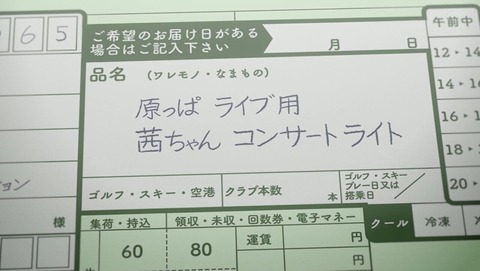 965
ご希望のお届け日がある
場合はご記入下さい
月 日
午前中
12
14
14
16
16
18
18
20
品名 (ワレモノ・なまもの)
原っぱ ライブ用
茜ちゃん コンサートライト
ョン
様
ゴルフ・スキー・空港
クラブ本数 本
ゴルフ・スキー
プレー日又は
搭乗日
集荷・持込
領収・未収・回数券・電子マネー
60
80
運賃 円
円
クール
冷凍